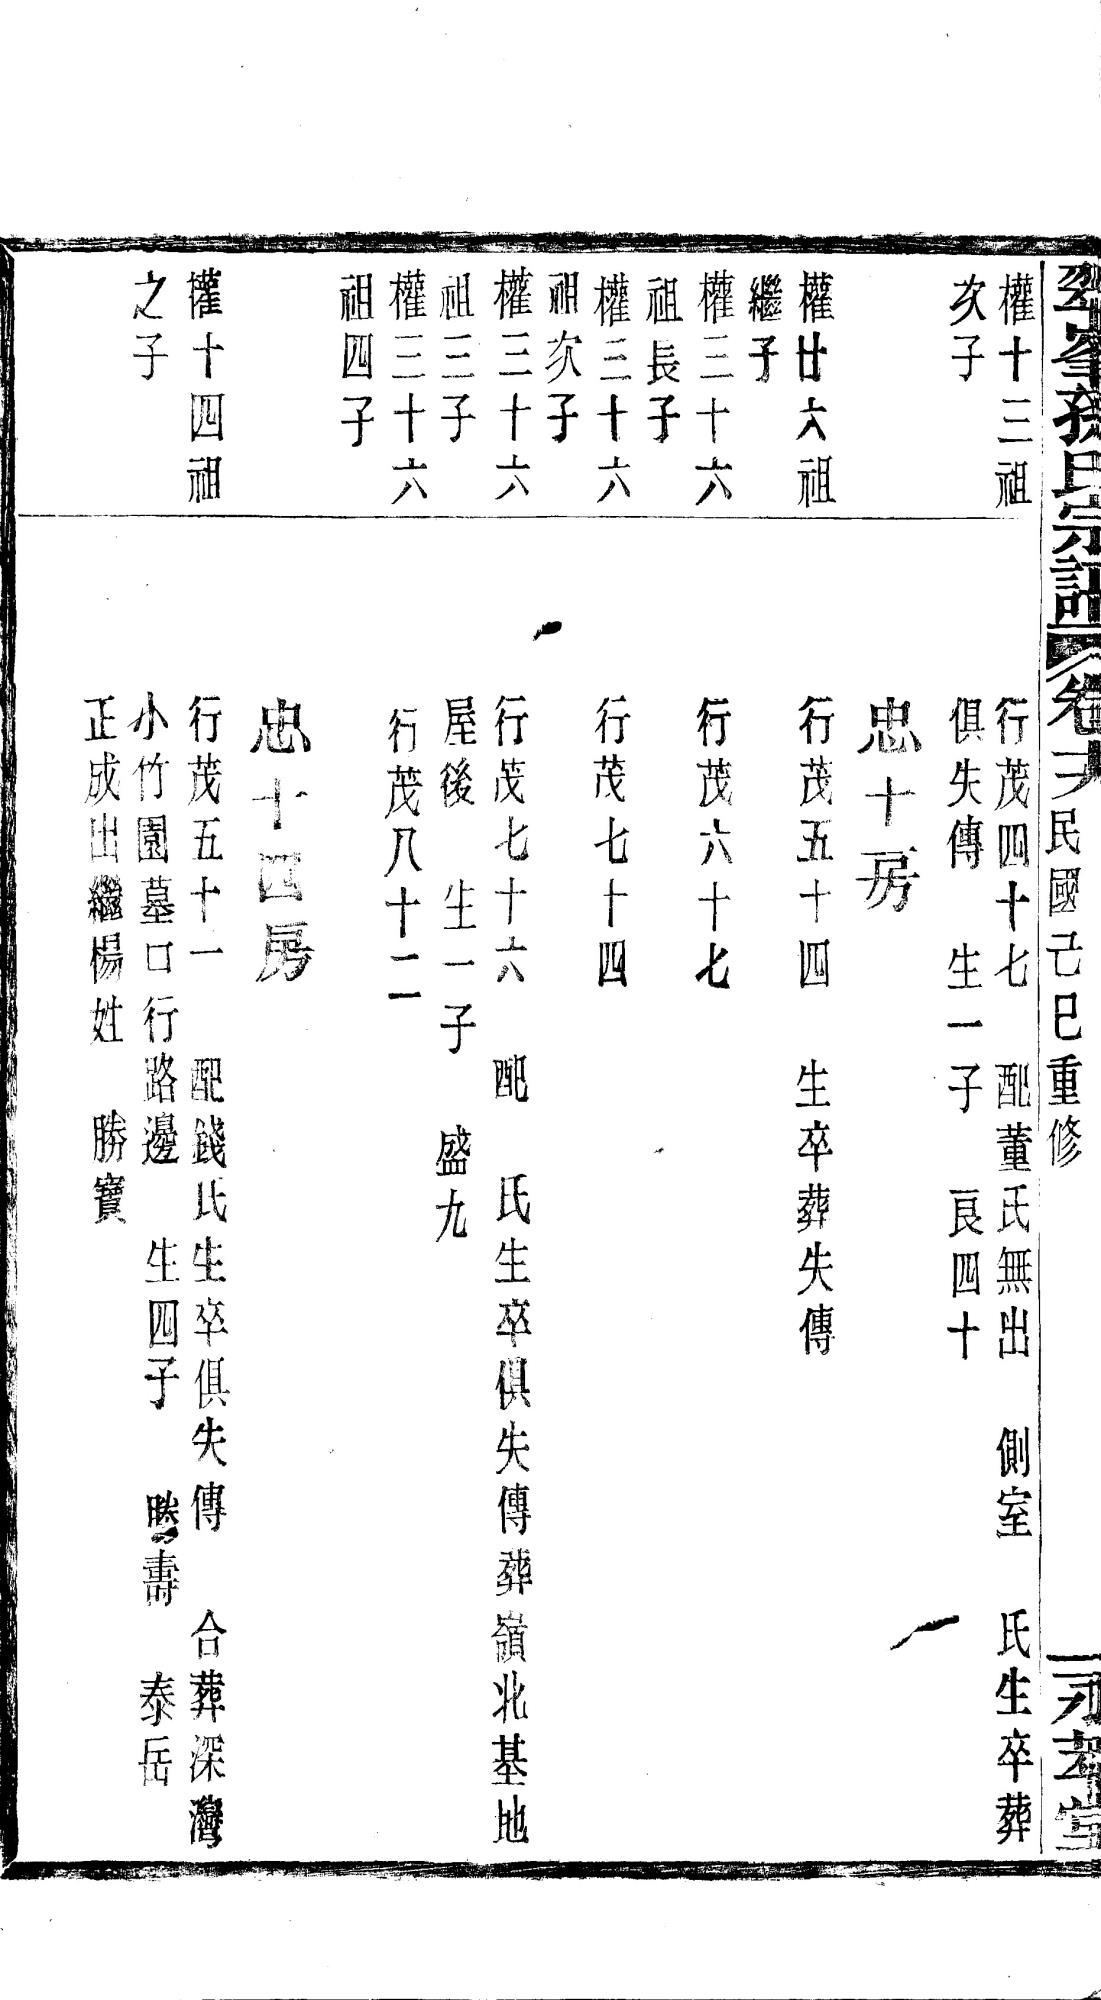 翠峯孫氏宗譜 卷十六 民國己巳重修 一 永孝堂
權十三祖
次子
行茂四十七 配董氏無出 側室 氏生卒葬
俱失傳 生一子 良四十
忠十房
權廿六祖
繼子
行茂五十四 生卒葬失傳
權三十六
祖長子
行茂六十七
權三十六
祖次子
行茂七十四
權三十六
祖三子
行茂七十六 配 氏生卒俱失傳葬嶺北基地
屋後 生一子 盛九
權三十六
祖四子
行茂八十二
忠十四房
權十四祖
之子
行茂五十一 配錢氏生卒俱失傳 合葬深灣
小竹園墓口行路邊 生四子 勝壽 泰岳
正成出繼楊姓 勝寶